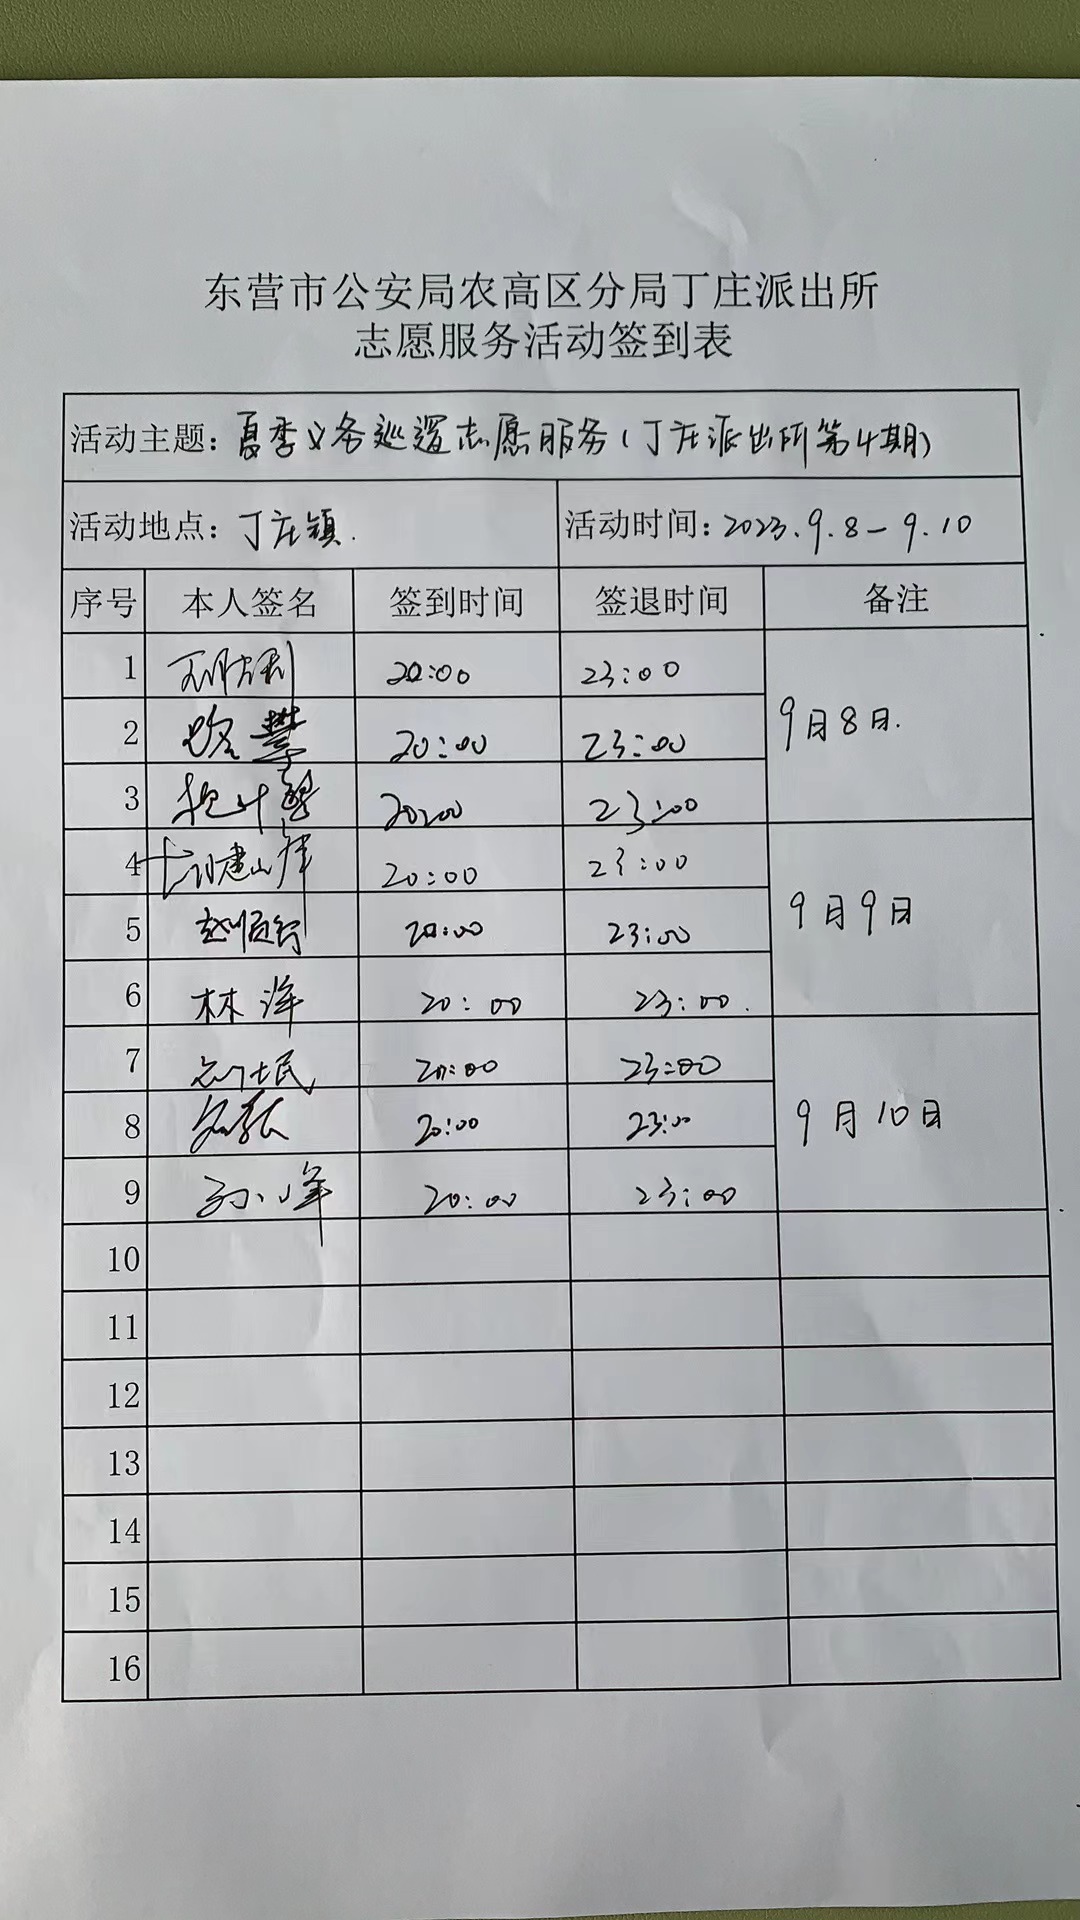 东营市公安局农高区分局丁庄派出所
志愿服务活动签到表
活动主题：夏季义务巡逻志愿服务（丁庄派出所第4期）
活动地点：丁庄镇. 活动时间：2023.9.8-9.10
序号 本人签名 签到时间 签退时间 备注
1 20:00 23:00
2 20:00 23:00 9月8日.
3 20:00 23:00
4 20:00 23:00
5 赵顺行 20:00 23:00 9月9日
6 林洋 20:00 23:00.
7 20:00 23:00
8 20:00 23:00 9月10日
9 孙小峰 20:00 23:00
10
11
12
13
14
15
16